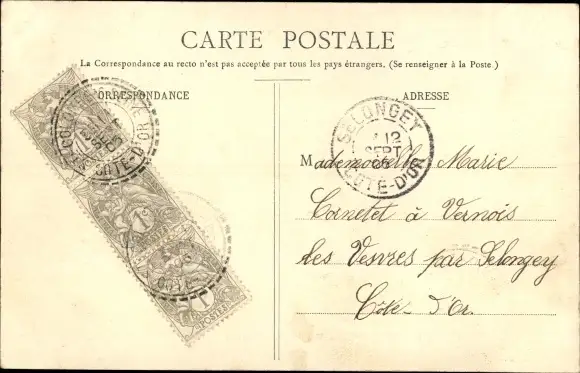 CARTE POSTALE
La Correspondance au recto n'est pas acceptée par tous les pays étrangers. (Se renseigner à la Poste)
CORRESPONDANCE
ADRESSE
SELONGEY
12
SEPT
CÔTE-D'OR
Mademoiselle Marie
Cornetet à Vernois
les Vesvres par Selongey
Côte-d'Or.
CÔTE-D'OR
POSTES